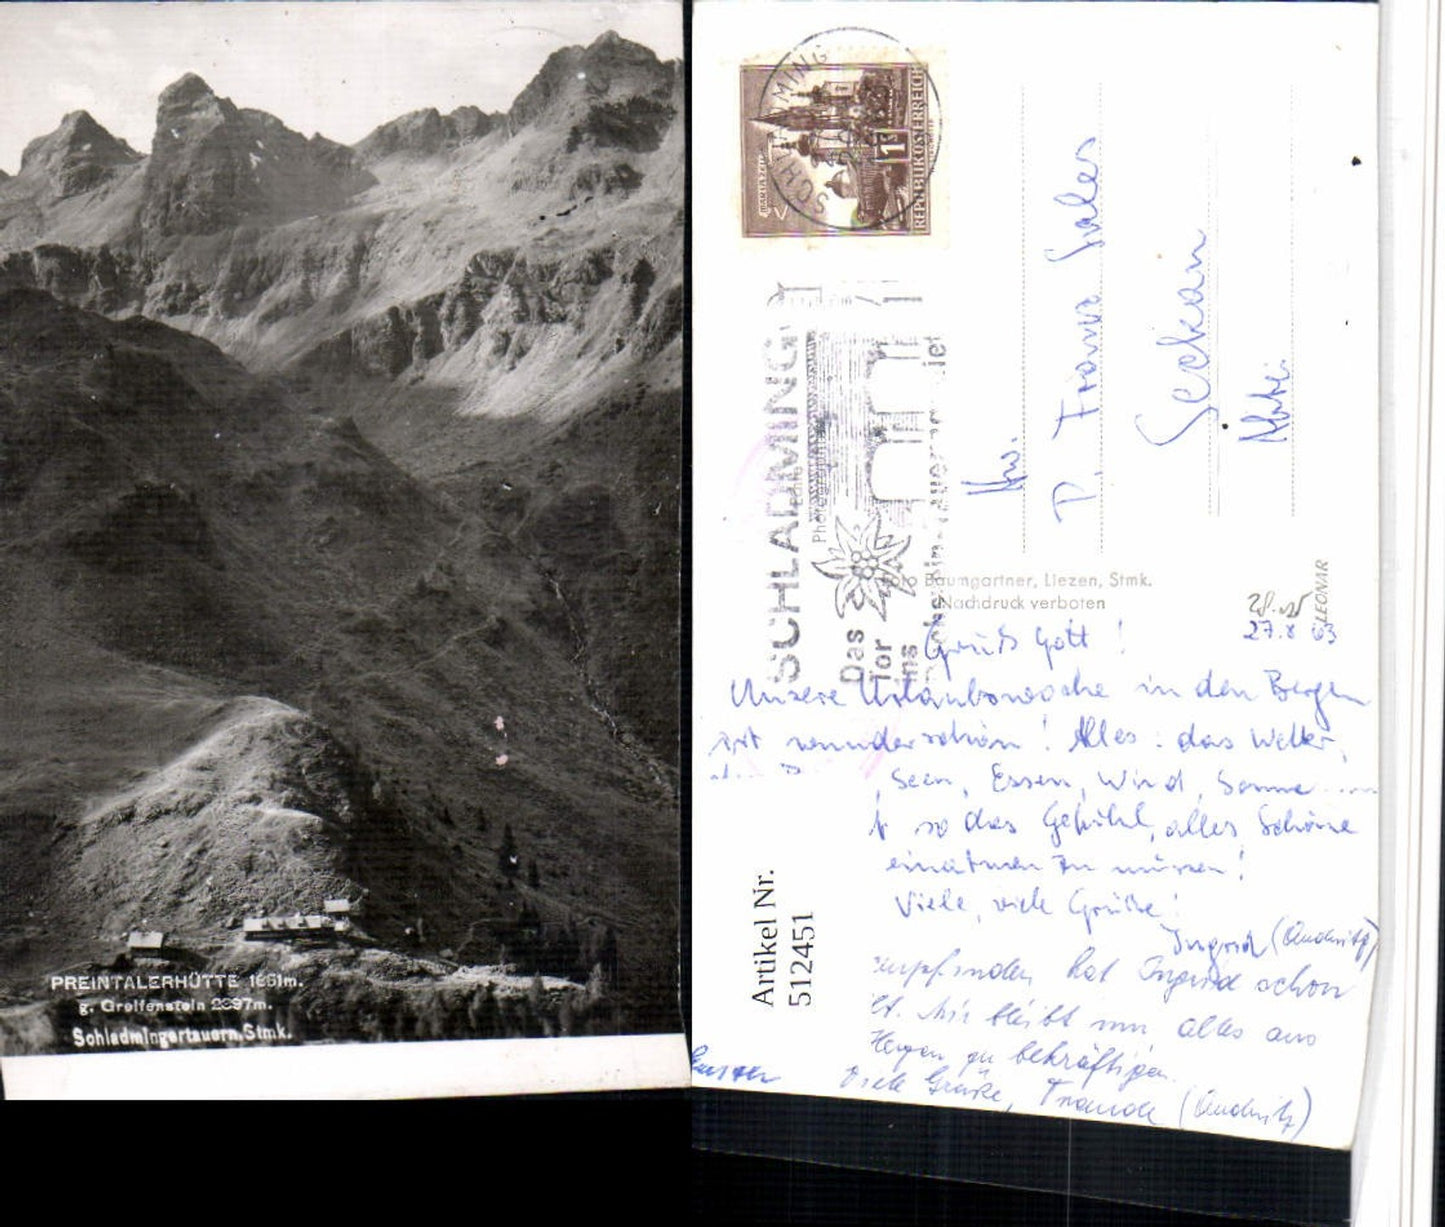 PREINTALERHÜTTE 1661m.
g. Greifenstein 2397m.
Schladmingertauern, Stmk.
SCHLADMING
REPUBLIK ÖSTERREICH
1
SCHLADMING
Das
Tor
ins
Hw.
P. Franz Sales
Seckau
Abtei
Foto Baumgartner, Liezen, Stmk.
Nachdruck verboten
LEONAR
27.8 63
Grüß Gott!
Unsere Urlaubswoche in den Bergen
ist wunderschön! Alles: das Wetter,
Seen, Essen, Wind, Sonne
so das Gefühl, alles Schöne
einatmen zu müssen!
Viele, viele Grüße!
Ingrid
empfinden hat Ingrid schon
Mir bleibt nur alles aus
Herzen zu bekräftigen.
Viele Grüße, Traude
Artikel Nr.
512451